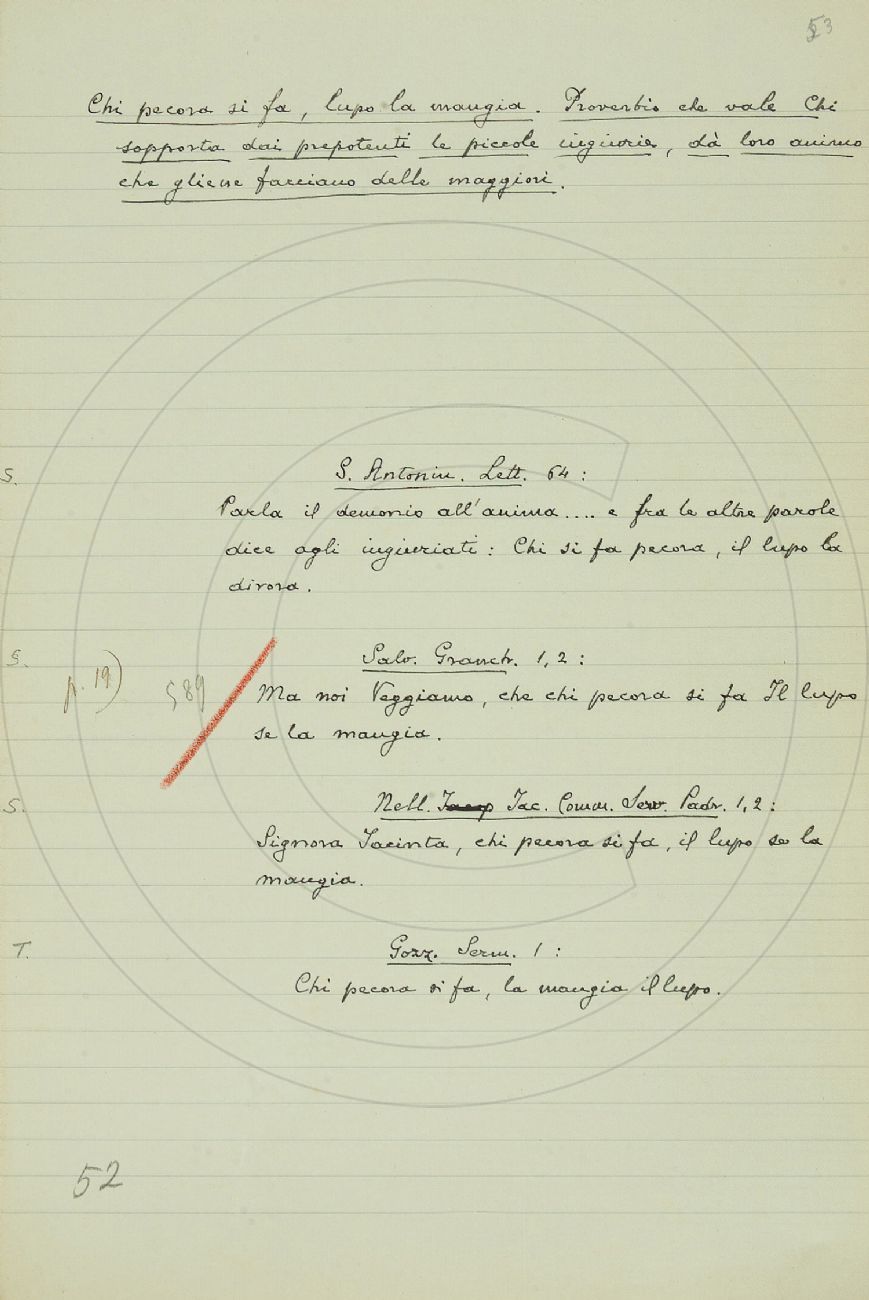 53
Chi pecora si fa, lupo la mangia. Proverbio che vale Chi
sopporta dai prepotenti le piccole ingiurie, dà loro animo
che gliene facciano delle maggiori.
S. S. Antonin. Lett. 64:
Parla il demonio all'anima.... e fra le altre parole
dice agli ingiuriati: Chi si fa pecora, il lupo la
divora.
S. Salv. Granch. 1, 2:
p. 19) § 89 Ma noi Veggiamo, che chi pecora si fa Il lupo
se la mangia.
S. Nell. Jac. Comm. Serv. Padr. 1, 2:
Signora Jacinta, chi pecora si fa, il lupo se la
mangia.
T. Gozz. Serm. 1:
Chi pecora si fa, la mangia il lupo.
52